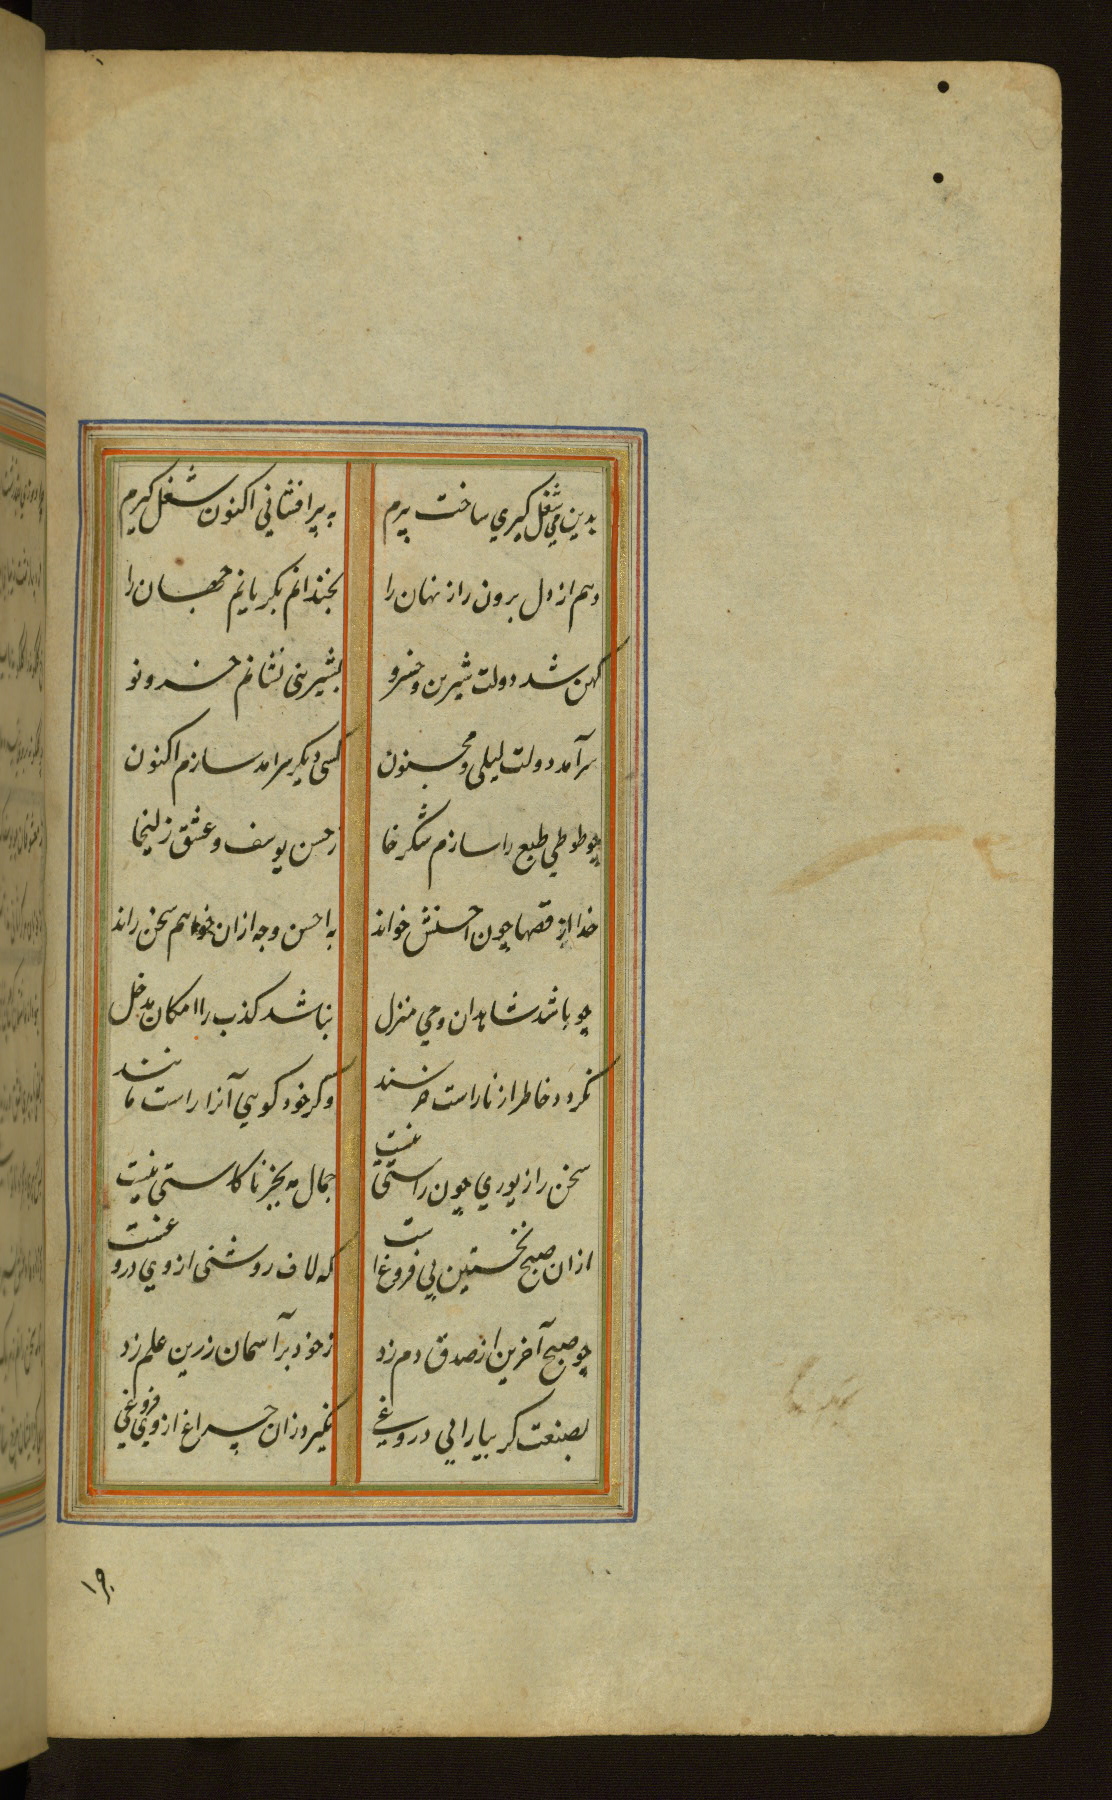 بدین می شغل گیری ساخت پیرم به پیرافشانی اکنون شغل گیرم
دهم از دل برون راز نهان را بخندانم بگریانم جهان را
کهن شد دولت شیرین و خسرو بشیرینی نشانم خسرو نو
سرآمد دولت لیلی و مجنون کسی دیگر سرامد سازم اکنون
چو طوطی طبع را سازم شکر خا ز حسن یوسف و عشق زلیخا
خدا از قصها چون احسنش خواند به احسن وجه ازان خواهم سخن راند
چو باشد شاهد ان وحی منزل نباشد کذب را امکان مدخل
نگردد خاطر از ناراست خرسند وگر خود گویی آنرا راست مانند
سخن را زیوری چون راستی نیست جمال مه بجز ناکاستی نیست
ازان صبح نخستین بی فروغ است که لاف روشنی از وی دروغست
چو صبح آخرین از صدق دم زد ز خود بر آسمان زرین علم زد
بصنعت گر بیارایی دروغی نگیرد زان چراغ از وی فروغی
۱۹۰